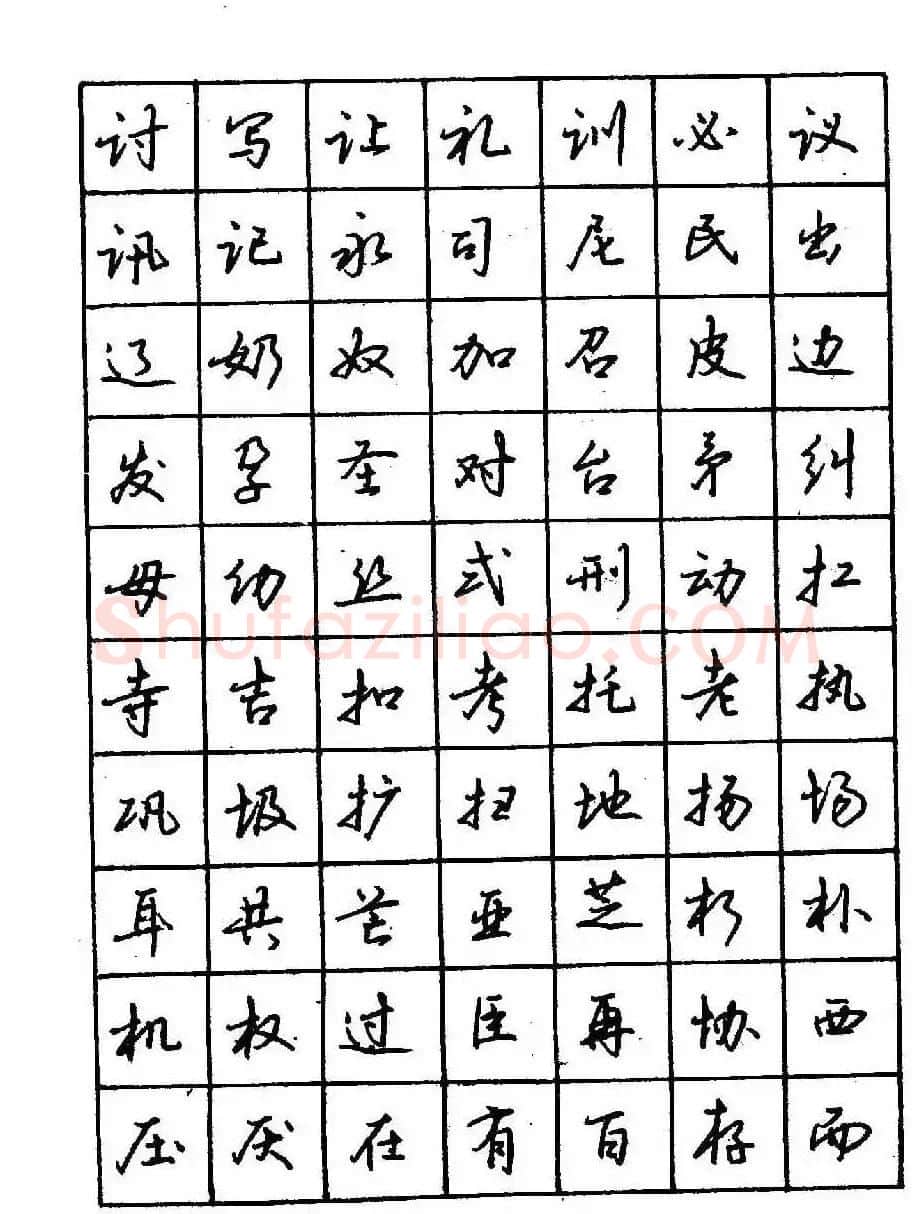 讨 写 让 礼 训 必 议
讯 记 永 司 尼 民 出
辽 奶 奴 加 召 皮 边
发 孕 圣 对 台 矛 纠
母 幼 丝 式 刑 动 扛
Shufaziliao.COM
寺 吉 扣 考 托 老 执
巩 圾 扩 扫 地 扬 场
耳 共 芒 亚 芝 朽 朴
机 权 过 臣 再 协 西
压 厌 在 有 百 存 而